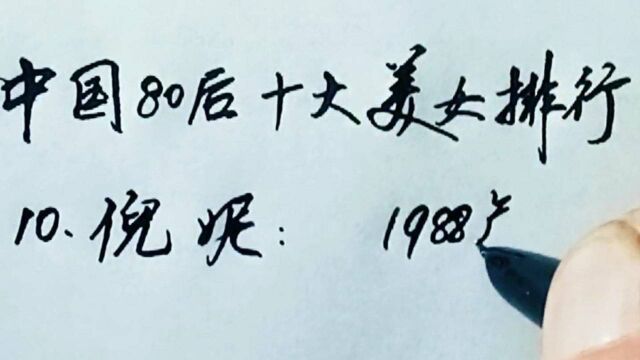 中国80后十大美女排行
10.倪妮: 1988